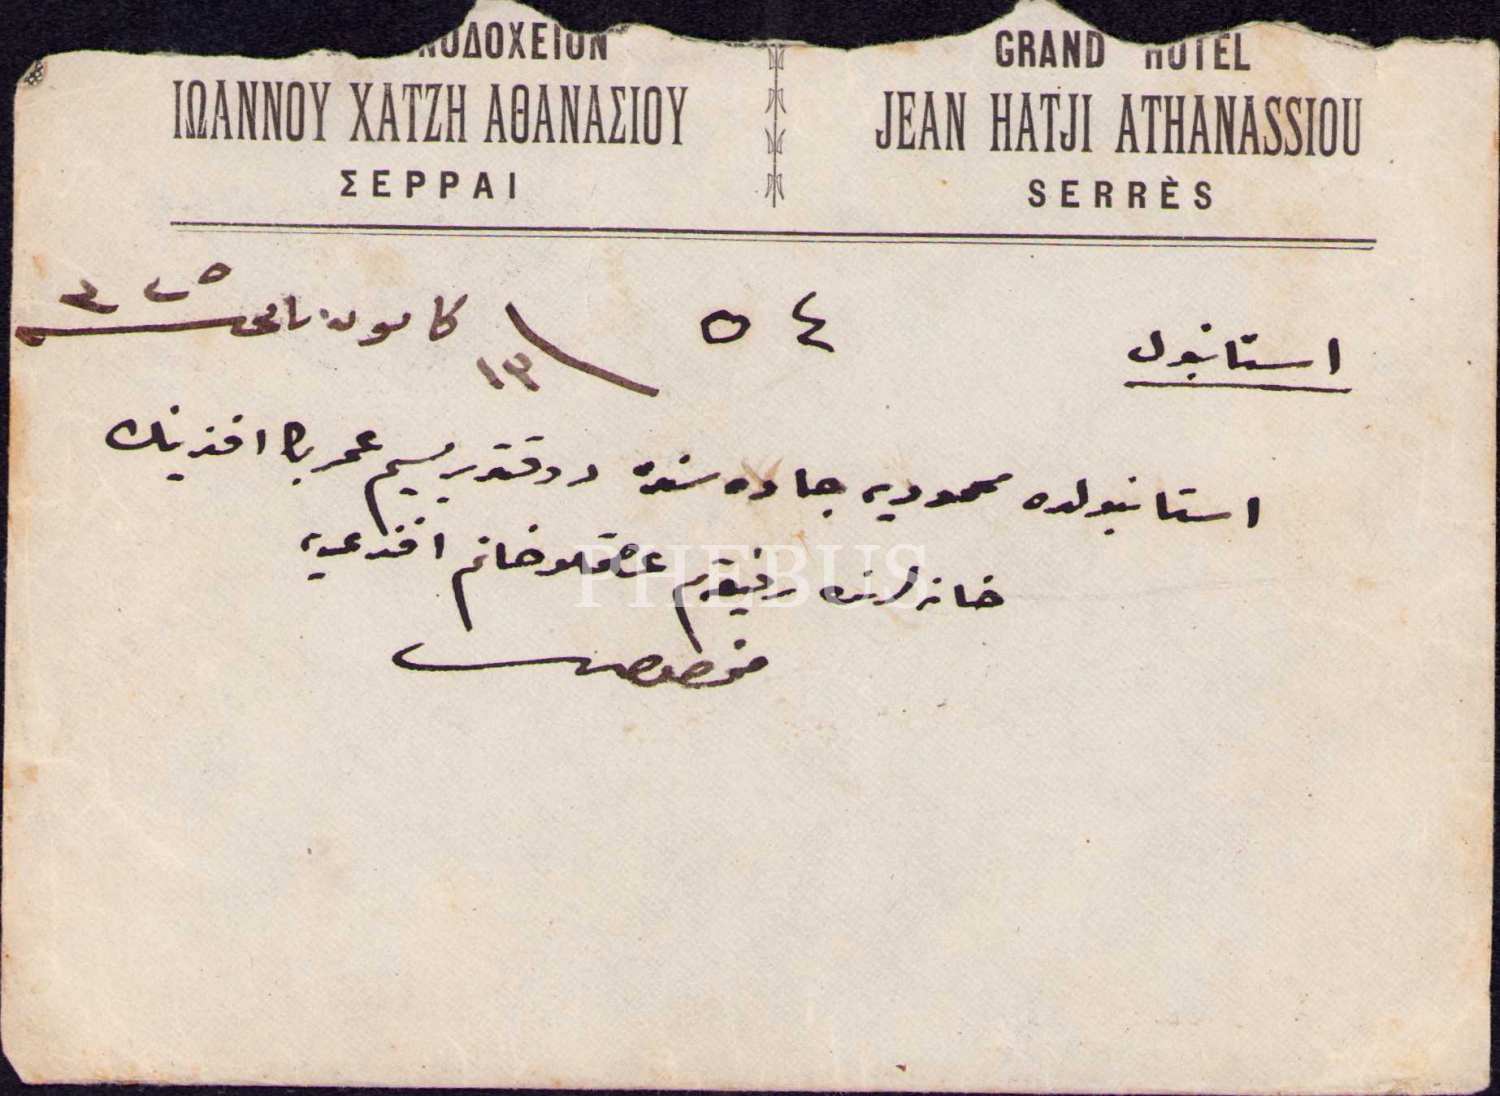 ΝΟΔΟΧΕΙΟΝ
ΙΩΑΝΝΟΥ ΧΑΤΖΗ ΑΘΑΝΑΣΙΟΥ
ΣΕΡΡΑΙ
GRAND HOTEL
JEAN HATJI ATHANASSIOU
SERRÈS
استانبول
٤ ٥
١٣ كانون ثانی ٣٢٥
استانبولده محموديه جاده سنده دوقتور بسيم عمر بك افندينك
خانه لرنده رفيقه م خانم افندی يه
مخصوصدر
PHEBUS